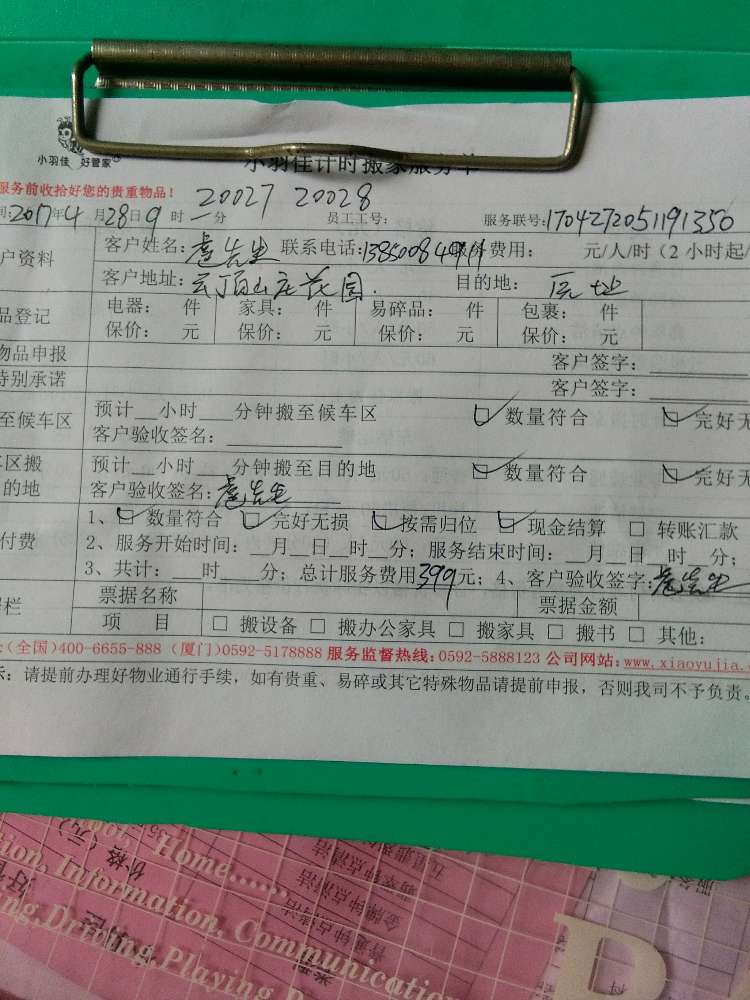 小羽佳 好管家®
小羽佳计时搬家服务单
服务前收拾好您的贵重物品！
20027 20028
间:2017年4月28日9时一分 员工工号: 服务联号:1704272051191350
户资料 客户姓名:卢先生 联系电话: 费用: 元/人/时（2小时起/
客户地址:云顶山庄花园. 目的地: 原址
品登记 电器: 件 家具: 件 易碎品: 件 包裹: 件
保价: 元 保价: 元 保价: 元 保价: 元
物品申报 客户签字:
特别承诺 客户签字:
至候车区 预计__小时___分钟搬至候车区 ☑ 数量符合 ☑ 完好无
客户验收签名:
区搬 预计__小时___分钟搬至目的地 ☑ 数量符合 ☑ 完好无
的地 客户验收签名:卢先生
1、☑ 数量符合 ☑ 完好无损 ☑ 按需归位 ☑ 现金结算 □ 转账汇款
付费 2、服务开始时间: __月__日__时__分; 服务结束时间: __月__日__时__分;
3、共计: __时___分; 总计服务费用399元; 4、客户验收签字:卢先生
栏 票据名称 票据金额
项 目 □ 搬设备 □ 搬办公家具 □ 搬家具 □ 搬书 □ 其他:
:(全国)400-6655-888 (厦门)0592-5178888 服务监督热线:0592-5888123 公司网站:www.xiaoyujia.
示: 请提前办理好物业通行手续，如有贵重、易碎或其它特殊物品请提前申报，否则我司不予负责。
Home......
Information, Communicatio
ng,Driving,Playing,D
价格(元)